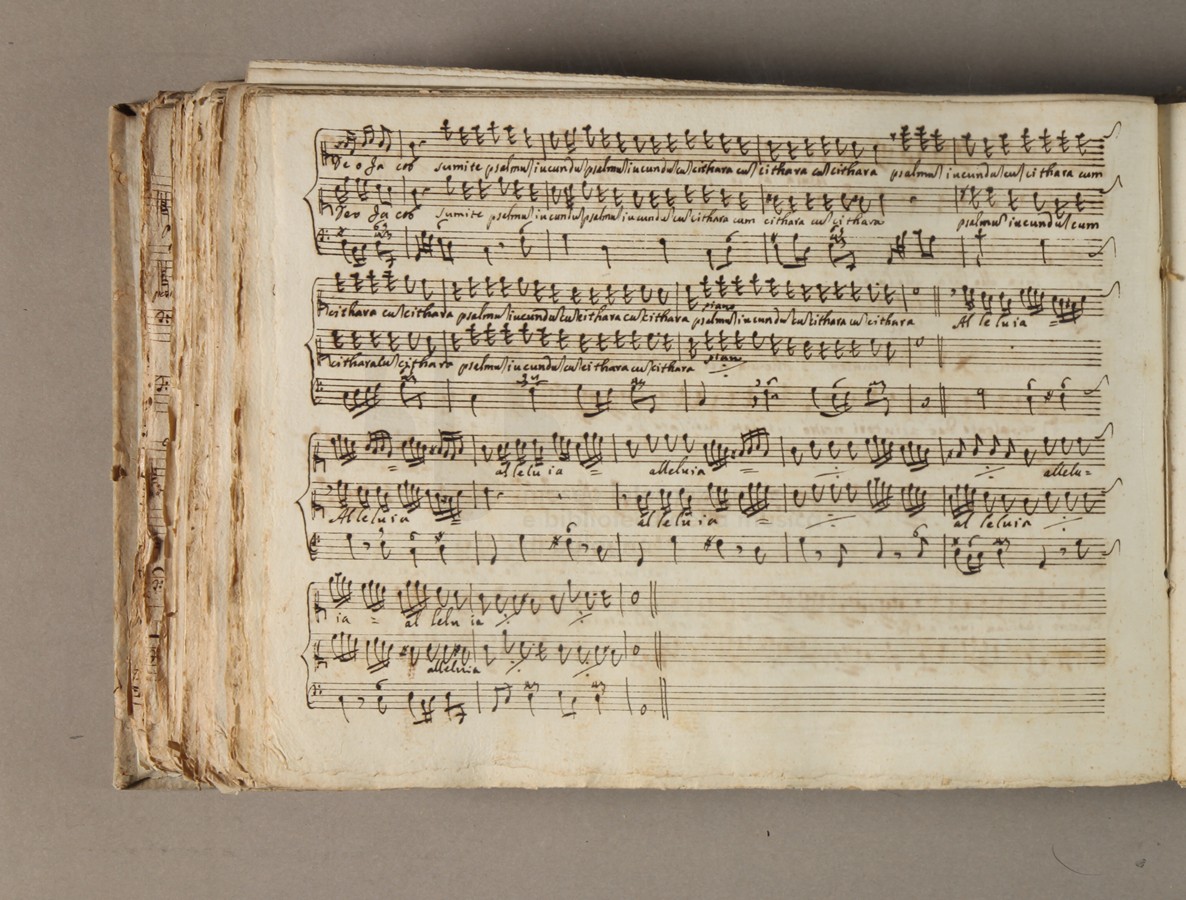 Deo Ja cob sumite psalmũ iucundũ psalmũ iucundũ cũ cithara cũ cithara cũ cithara psalmũ iucundũ cũ cithara cum
Deo Ja cob sumite psalmũ iucundũ psalmũ iucundũ cũ cithara cum cithara cũ cithara psalmũ iucundũ cum
cithara cũ cithara psalmũ iucundũ cũ cithara cũ cithara psalmũ iucundũ cũ cithara cũ cithara Al le luia
piano
cithara cũ cithara psalmũ iucundũ cũ cithara cũ cithara
piano
al le lu ia alleluia allelu=
Al le lu ia al le lu ia al leluia
ia = al lelu ia
alleluia